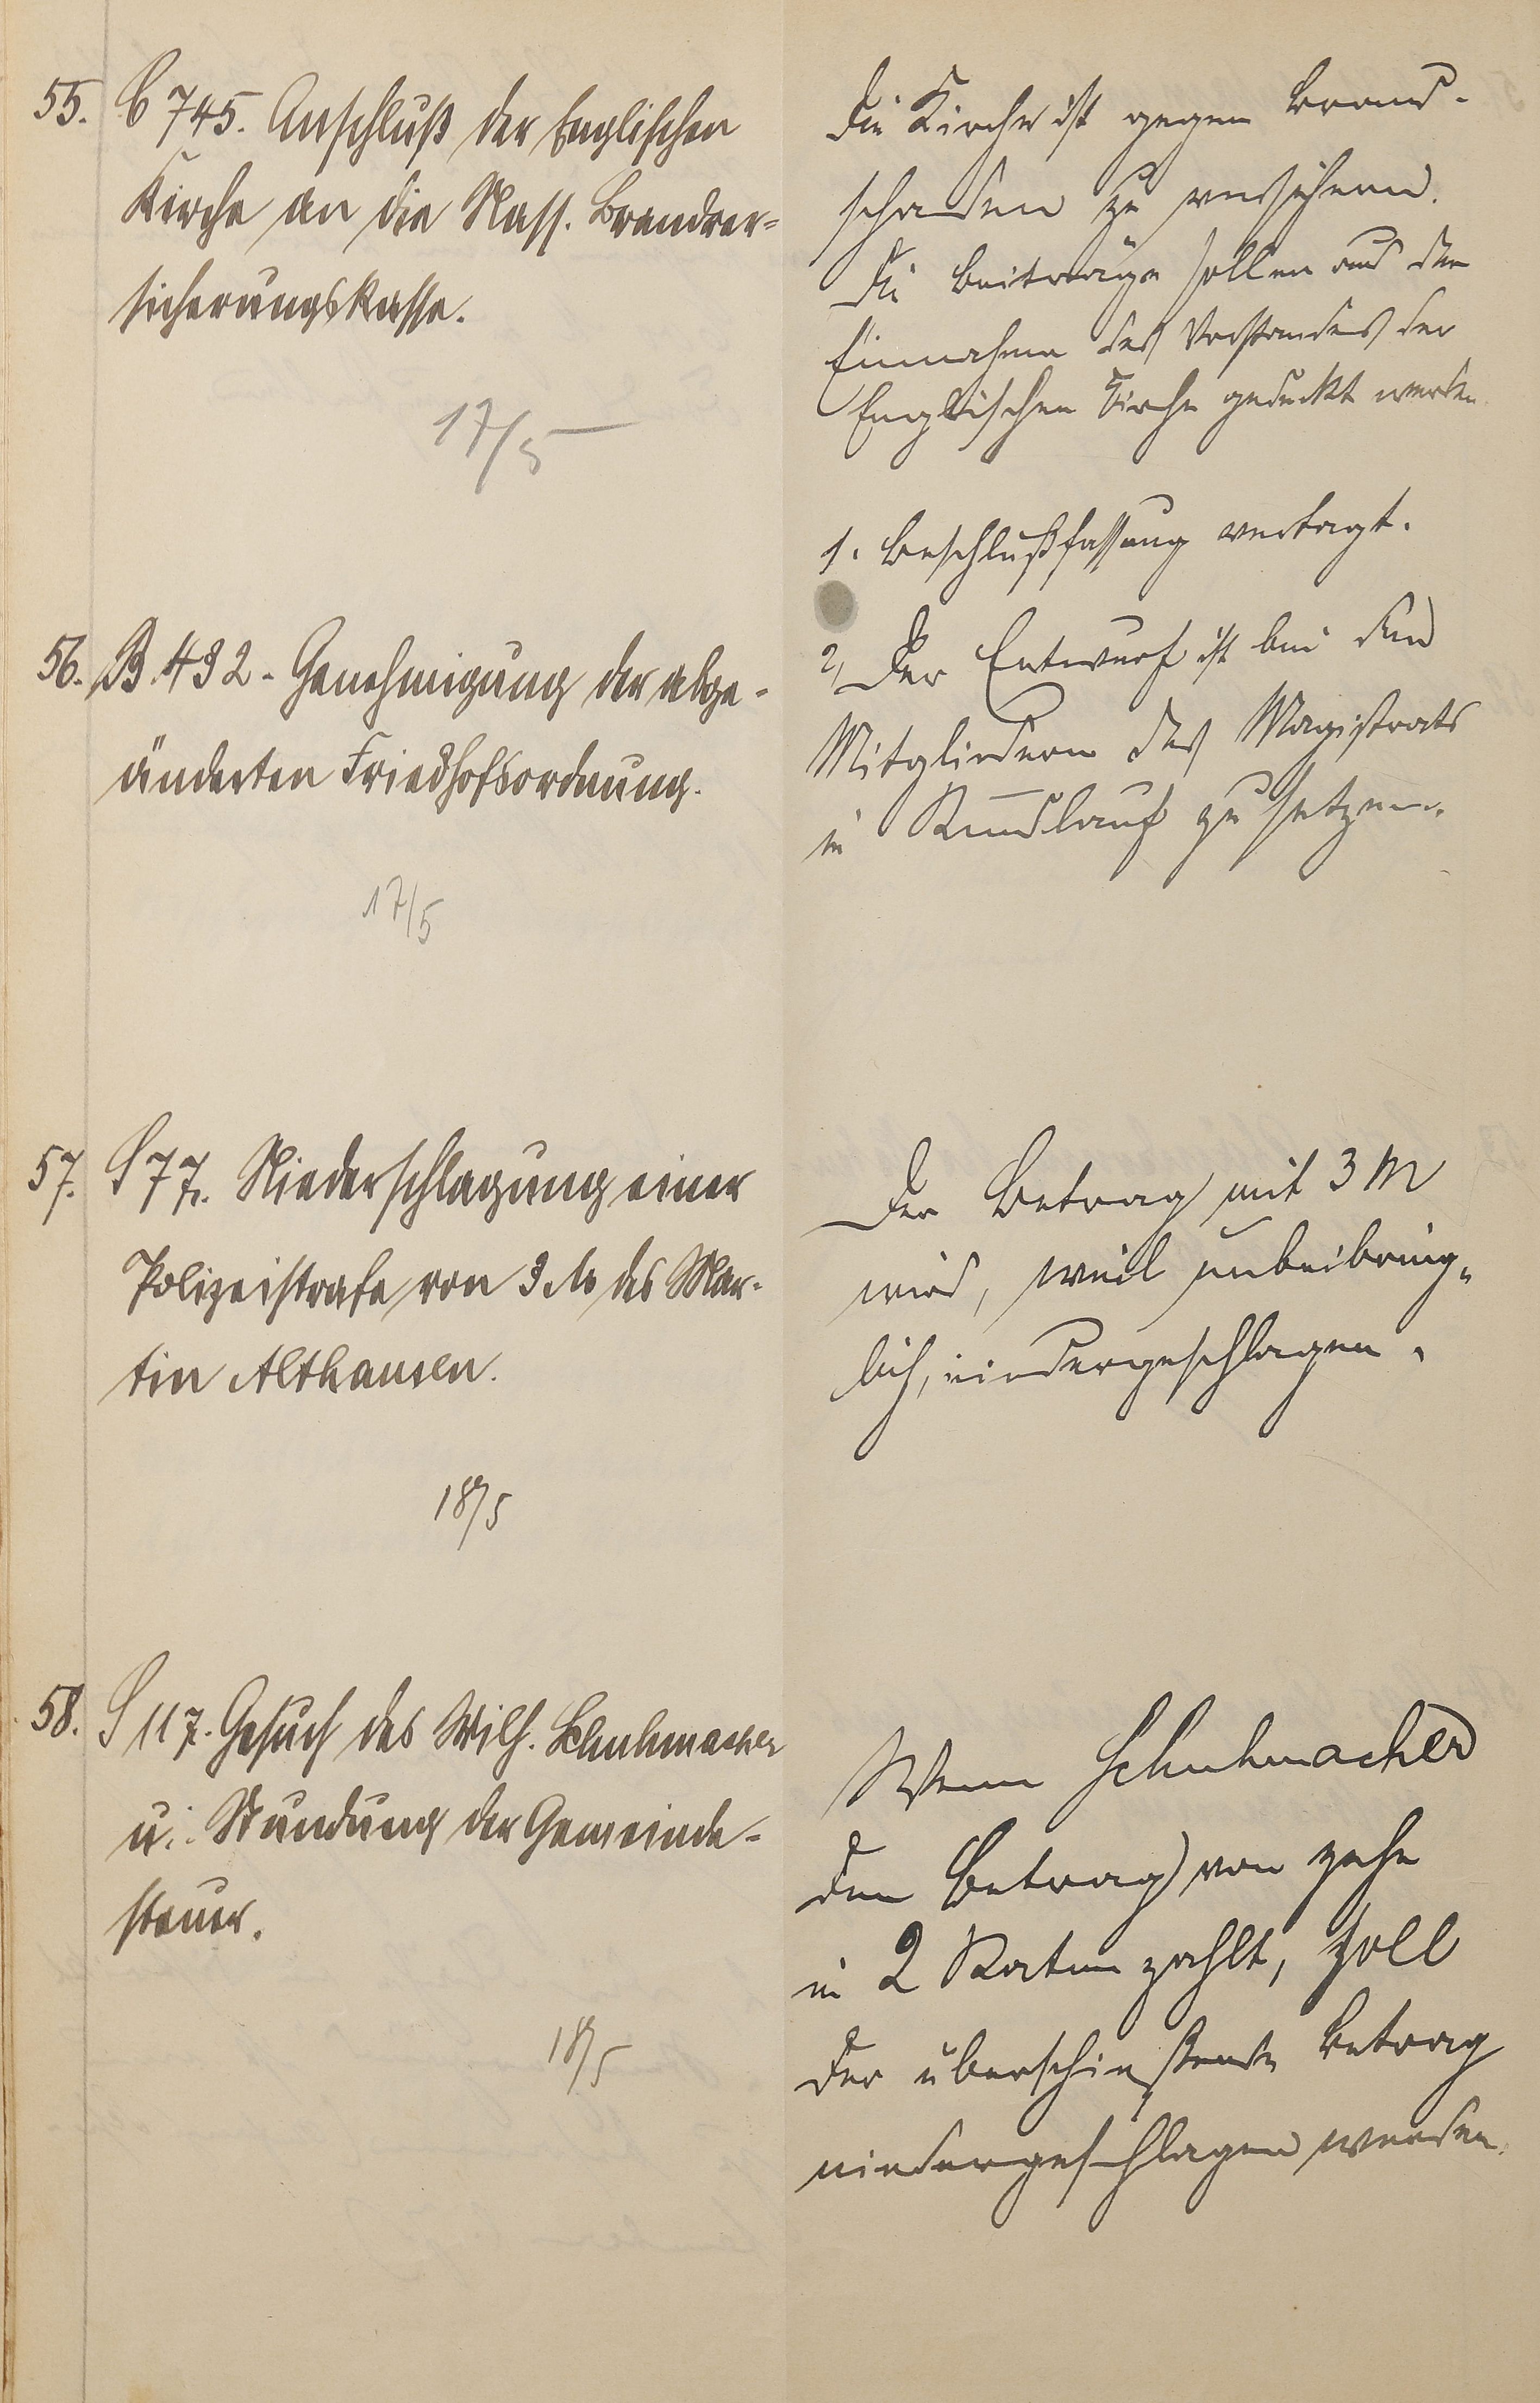 55. C 745. Anschluß der Englischen
Kirche an die Nass. Brandver=
sicherungskasse.
17/5
Die Kirche ist gegen Brand-
schaden zu versichern.
Die Beiträge sollen aus den
Einnahmen des Vorstandes der
Englischen Kirche gedeckt werden
56. B. 492 - Genehmigung der abge-
änderten Friedhofsordnung.
17/5
1. Beschlußfassung vertagt.
2, Der Entwurf ist bei den
Mitgliedern des Magistrats
in Rundlauf zu setzen.
57. S 77. Niederschlagung einer
Polizeistrafe von 3 M des Mar-
tin Althausen.
18/5
Der Betrag mit 3 M
wird, weil unbeibring-
lich, niedergeschlagen.
58. S 117. Gesuch des Wilh. Schuhmacher
u. Stundung der Gemeinde-
steuer.
18/5
Wenn Schuhmacher
den Betrag von
in 2 Raten zahlt, soll
der überschießende Betrag
niedergeschlagen werden.